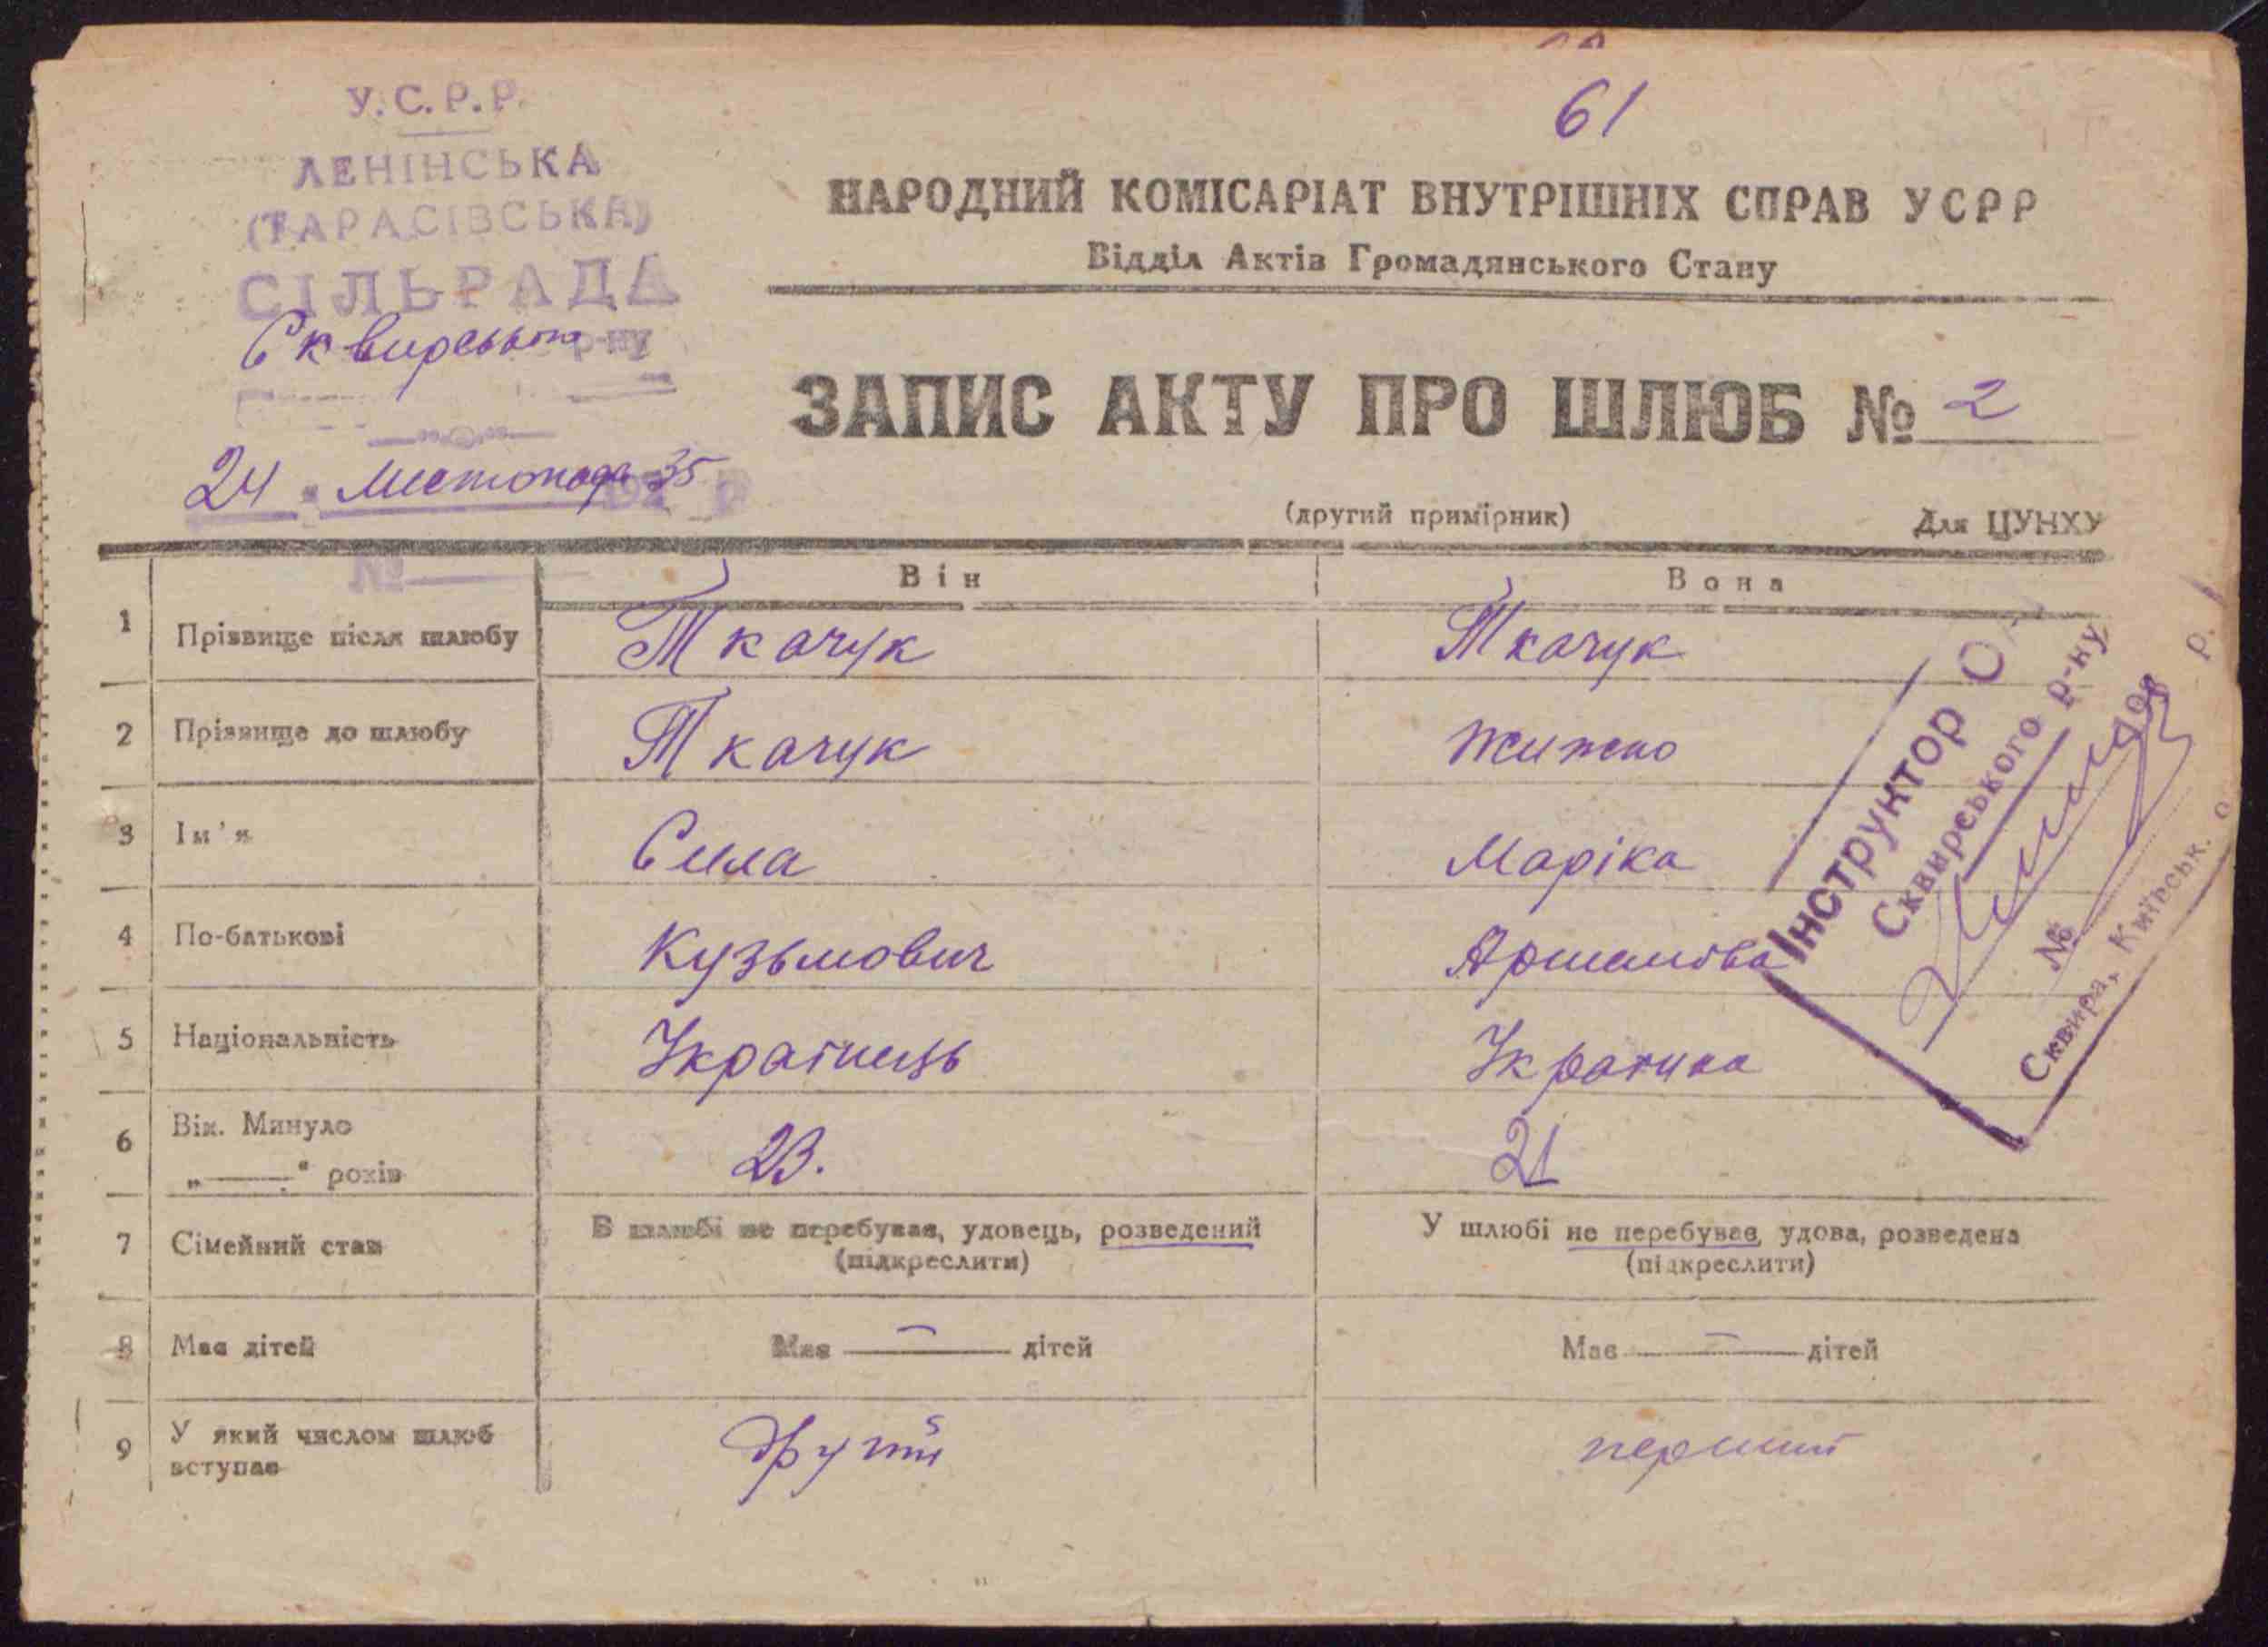 61
У.С.Р.Р.
ЛЕНІНСЬКА
(ТАРАСІВСЬКА)
СІЛЬРАДА
Сквирського р-ну
24 Листопада 35
№
НАРОДНИЙ КОМІСАРІАТ ВНУТРІШНІХ СПРАВ УСРР
Відділ Актів Громадянського Стану
ЗАПИС АКТУ ПРО ШЛЮБ № 2
(другий примірник) Для ЦУНХУ
Він Вона
1 Прізвище після шлюбу Ткачук Ткачук
2 Прізвище до шлюбу Ткачук
3 Ім'я Сила Маріка
4 По-батькові Кузьмович
5 Національність Українець Українка
6 Вік. Минуло 23. 21
„——" років
7 Сімейний стан В шлюбі не перебуває, удовець, розведений У шлюбі не перебуває, удова, розведена
(підкреслити) (підкреслити)
8 Має дітей Має — дітей Має — дітей
9 У який числом шлюб другий перший
вступає
Інструктор
Сквирського р-ну
№
Сквира, Київськ. о